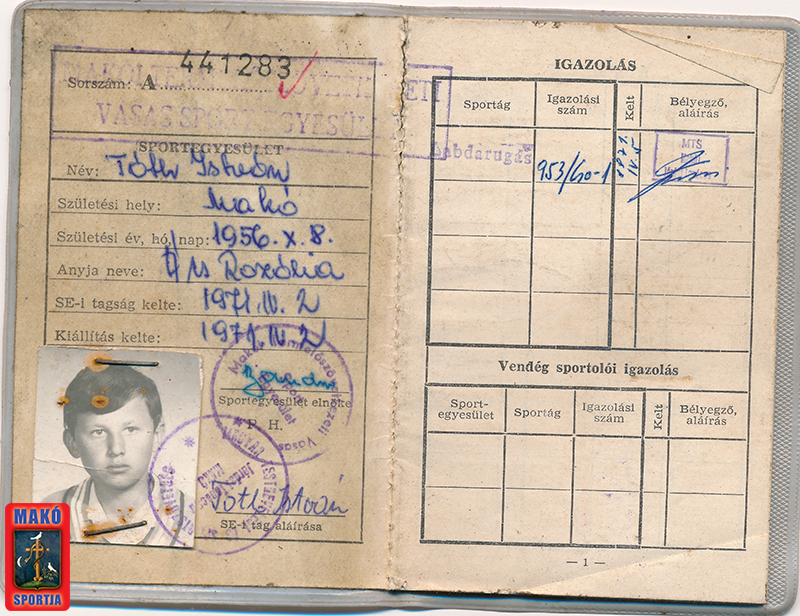 441283
Sorszám: A
VASAS SPORTEGYESÜLET
SPORTEGYESÜLET
Név: Tóth István
Születési hely: Makó
Születési év, hó, nap: 1956. X. 8.
Anyja neve: Rozália
SE-i tagság kelte: 1971. IV. 2
Kiállítás kelte: 1971. IV. 2
Sportegyesület elnöke
P. H.
Tóth István
SE-i tag aláírása
MAKÓ
SPORTJA
IGAZOLÁS
Sportág
Igazolási szám
Kelt
Bélyegző, aláírás
Labdarúgás
953/60-1
MTS
Vendég sportolói igazolás
Sport-egyesület
Sportág
Igazolási szám
Kelt
Bélyegző, aláírás
— 1 —